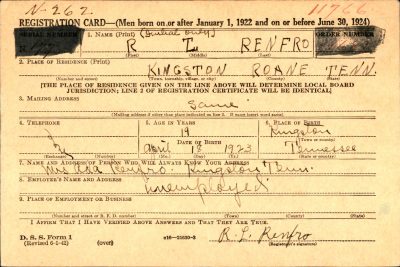 N-262. 11766
REGISTRATION CARD—(Men born on or after January 1, 1922 and on or before June 30, 1924)
SERIAL NUMBER 1. NAME (Print) (Initial only) ORDER NUMBER
R L RENFRO
(First) (Middle) (Last)
2. PLACE OF RESIDENCE (Print)
KINGSTON ROANE TENN.
(Number and street) (Town, township, village, or city) (County) (State)
[THE PLACE OF RESIDENCE GIVEN ON THE LINE ABOVE WILL DETERMINE LOCAL BOARD
JURISDICTION; LINE 2 OF REGISTRATION CERTIFICATE WILL BE IDENTICAL]
3. MAILING ADDRESS
Same
(Mailing address if other than place indicated on line 2. If same insert word same)
4. TELEPHONE 5. AGE IN YEARS 6. PLACE OF BIRTH
19 Kingston
DATE OF BIRTH (Town or county)
April 18 1923 Tennessee
(Exchange) (Number) (Mo.) (Day) (Yr.) (State or country)
7. NAME AND ADDRESS OF PERSON WHO WILL ALWAYS KNOW YOUR ADDRESS
Mrs Renfro Kingston Tenn.
8. EMPLOYER'S NAME AND ADDRESS
Unemployed
9. PLACE OF EMPLOYMENT OR BUSINESS
(Number and street or R. F. D. number) (Town) (County) (State)
I AFFIRM THAT I HAVE VERIFIED ABOVE ANSWERS AND THAT THEY ARE TRUE.
D. S. S. Form 1 R. L. Renfro
(Revised 6-9-42) (over) (Registrant's signature)